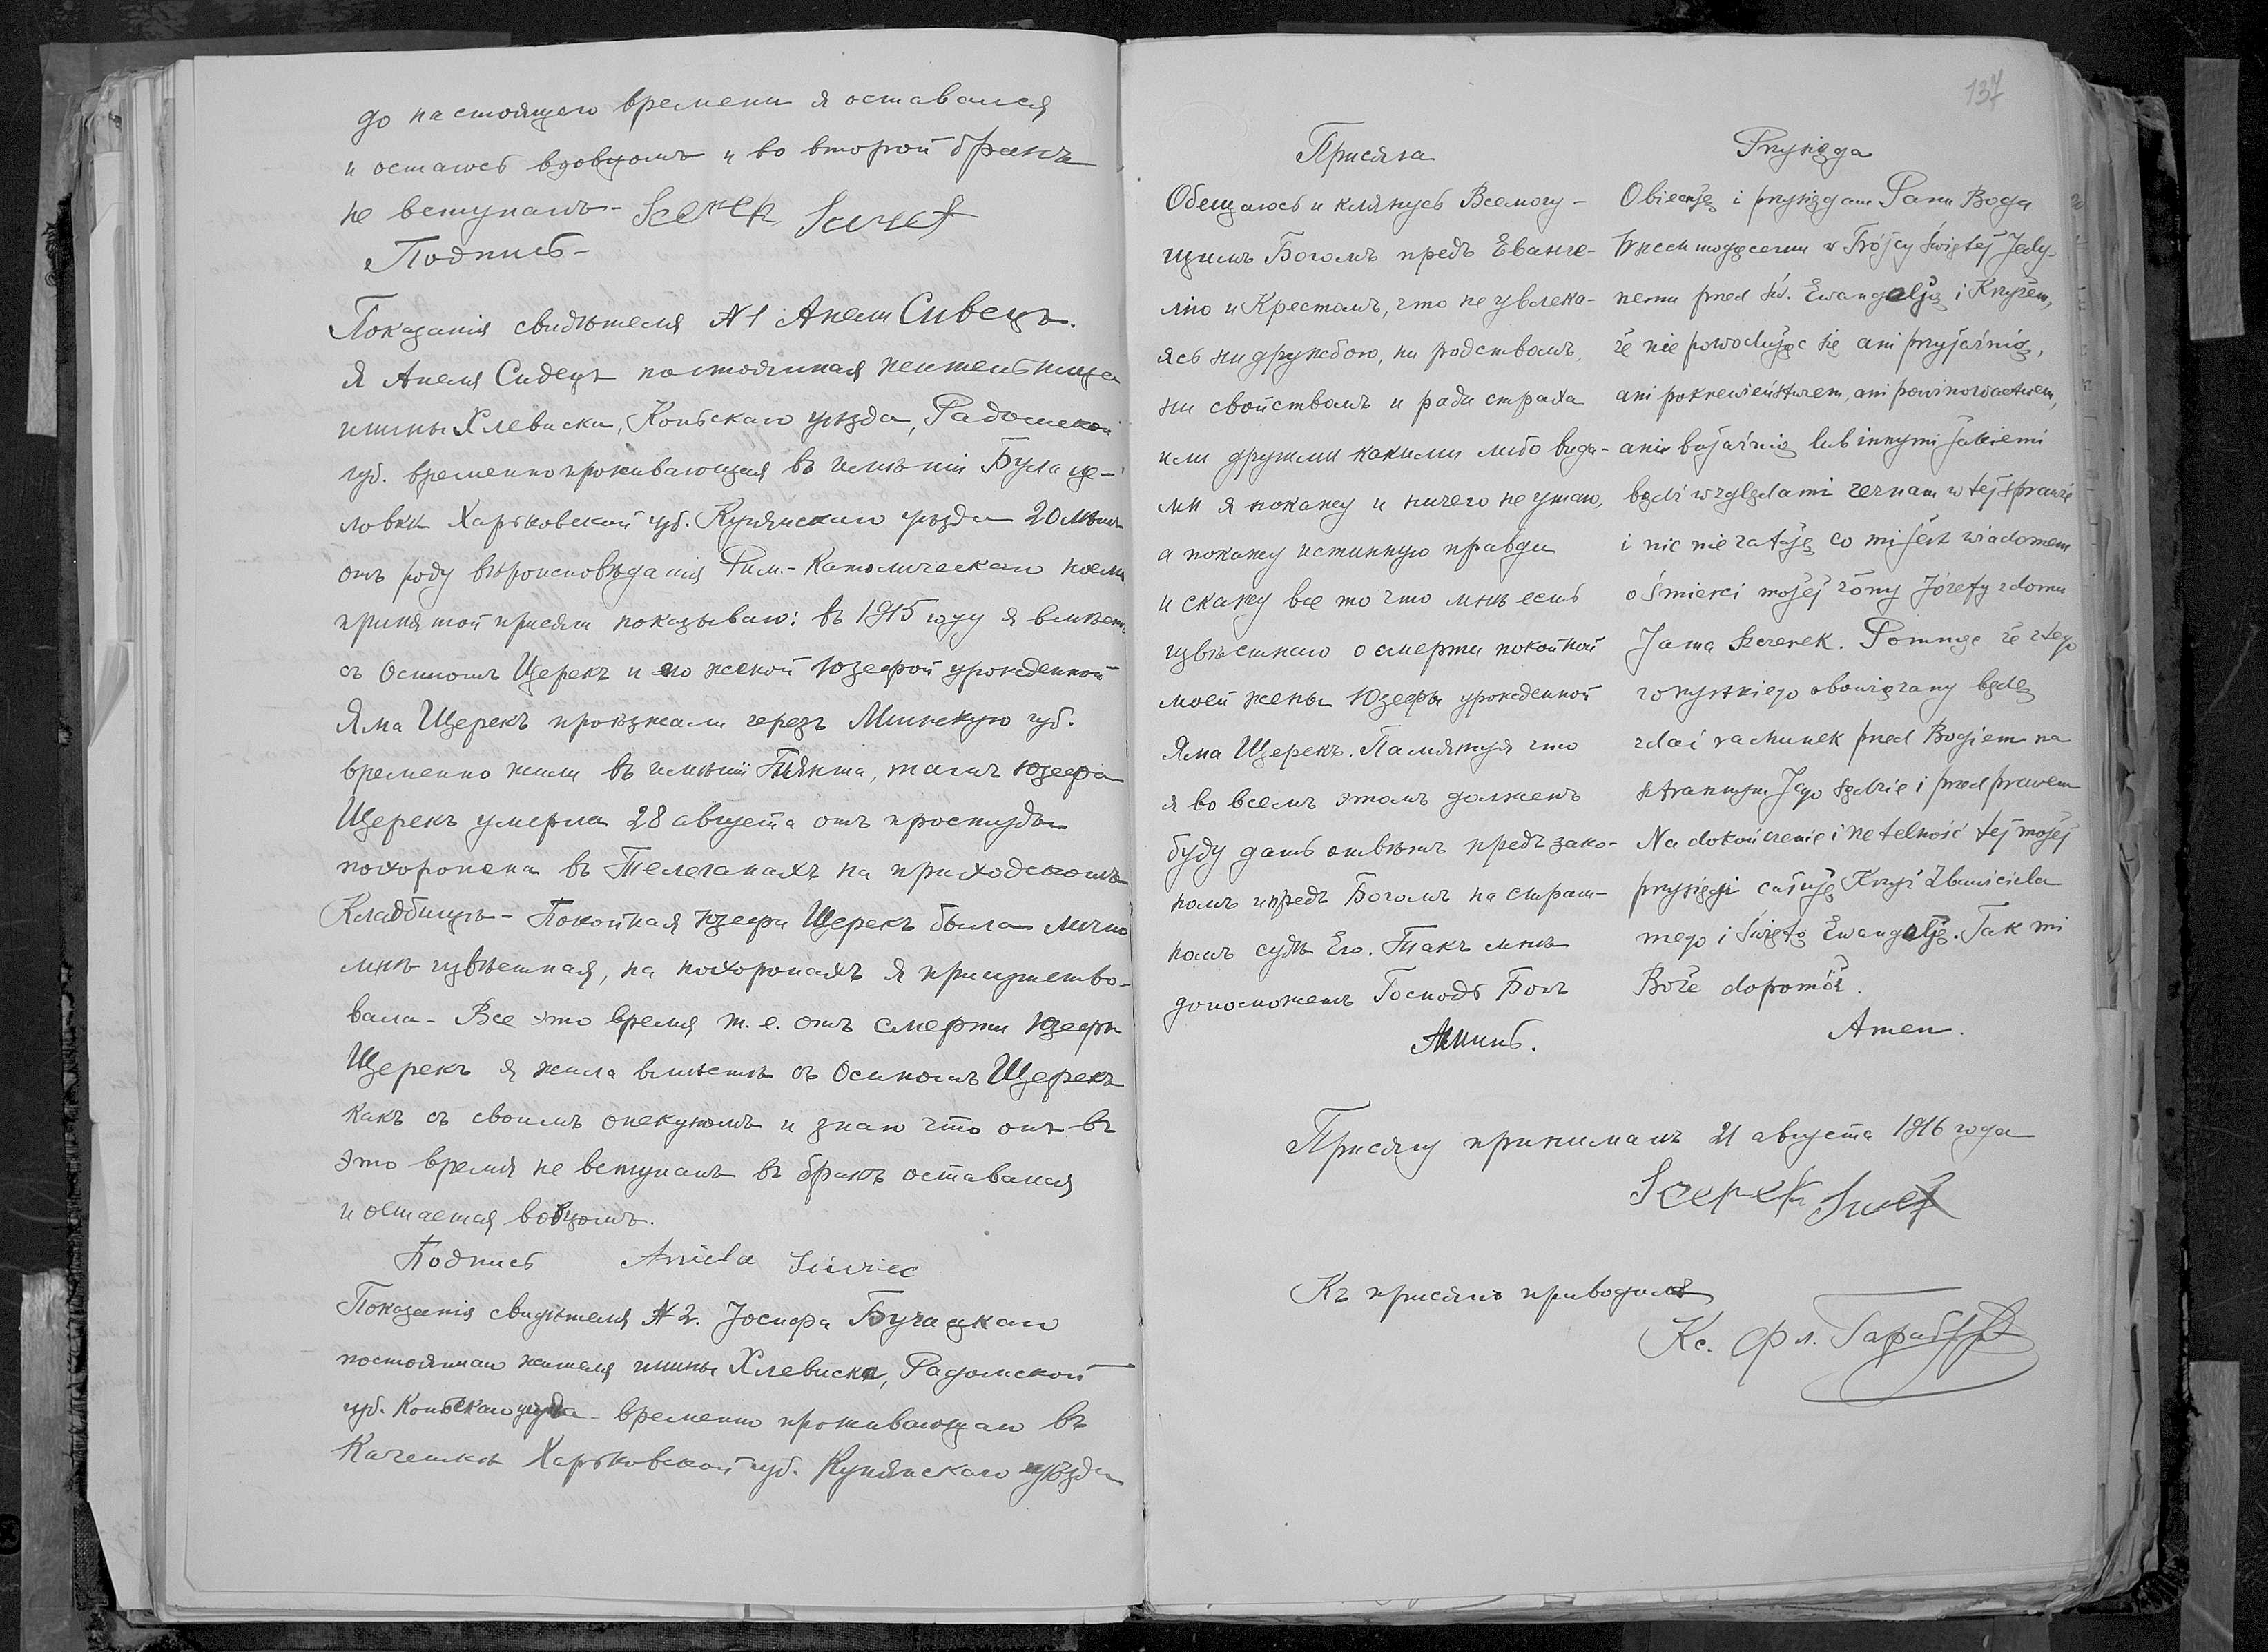 до настоящего времени я оставался
и остаюсь вдовцомъ и во второй бракъ
не вступалъ-
Подпись-
Показанія свидѣтеля №1 Анели Сивецъ.
Я Анеля Сивецъ постоянная жительница
гмины Хлевиска, Коньскаго уѣзда, Радомской
губ. временно проживающая въ имѣніи Булаце-
ловки Харьковской губ. Купянскаго уѣзда 20 лѣтъ
отъ роду вѣроисповѣданія Рим.-Католическаго послѣ
принятой присяги показываю: въ 1915 году я вмѣстѣ
съ Осипомъ Щерекъ и его женой Юзефой урожденной
Яма Щерекъ проѣзжали черезъ Минскую губ.
временно жили въ имѣніи тамъ Юзефа
Щерекъ умерла 28 августа отъ простуды
похоронена въ Телеганахъ на приходскомъ
Кладбищѣ- Покойная Юзефа Щерекъ была лично
мнѣ извѣстная, на похоронахъ я присутство-
вала- Все это время т.е. отъ смерти Юзефы
Щерекъ я жила вмѣстѣ съ Осипомъ Щерекъ
какъ съ своимъ опекуномъ и знаю что онъ въ
это время не вступалъ въ бракъ оставался
и остается вдовцомъ.
Подпись Aniela Siwiec
Показанія свидѣтеля №2. Іосифа Бучацкаго
постояннаго жителя гмины Хлевиска, Радомской
губ. Коньскаго уѣзда- временно проживающаго въ
Харьковской губ. Купянскаго уѣзда
137
Присяга
Обещаюсь и клянусь Всемогу-
щимъ Богомъ предъ Еванге-
ліо и Крестомъ, что не увлека-
ясь ни дружбою, ни родствомъ,
ни свойствомъ и ради страха
или другими какими либо вида-
ми я покажу и ничего не утаю,
а покажу истинную правду
и скажу все то что мнѣ есть
извѣстнаго о смерти покойной
моей жены Юзефы урожденной
Яма Щерекъ. Памятуя что
я во всемъ этомъ долженъ
буду дать отвѣтъ предъ зако-
номъ и предъ Богомъ на страш-
номъ судѣ Его. Такъ мнѣ
допоможетъ Господь Богъ
Аминь.
Przysięga
Obiecuję i przysięgam Panu Bogu
Wszechmogącemu w Trójcy Świętej Jedy-
nemu przed Św. Ewangelją i Krzyżem,
że nie powodując się ani przyjaźnią,
ani pokrewieństwem, ani powinowactwem,
ani bojaźnią lub innymi jakiemi
bądź względami zeznam w tej sprawie
i nic nie zataję co mi jest wiadomem
o śmierci mojej żony Józefy z domu
Jama Szczerek. Pomnąc że z tego
wszystkiego obowiązany będę
zdać rachunek przed Bogiem na
strasznym Jego Sądzie i przed prawem
Na dokończenie i rzetelność tej mojej
przysięgi całuję Krzyż Zbawiciela
mego i Świętą Ewangelję. Tak mi
Boże dopomóż.
Amen.
Присягу принималъ 21 августа 1916 года
Къ присягѣ приводилъ
Кс. Фл.